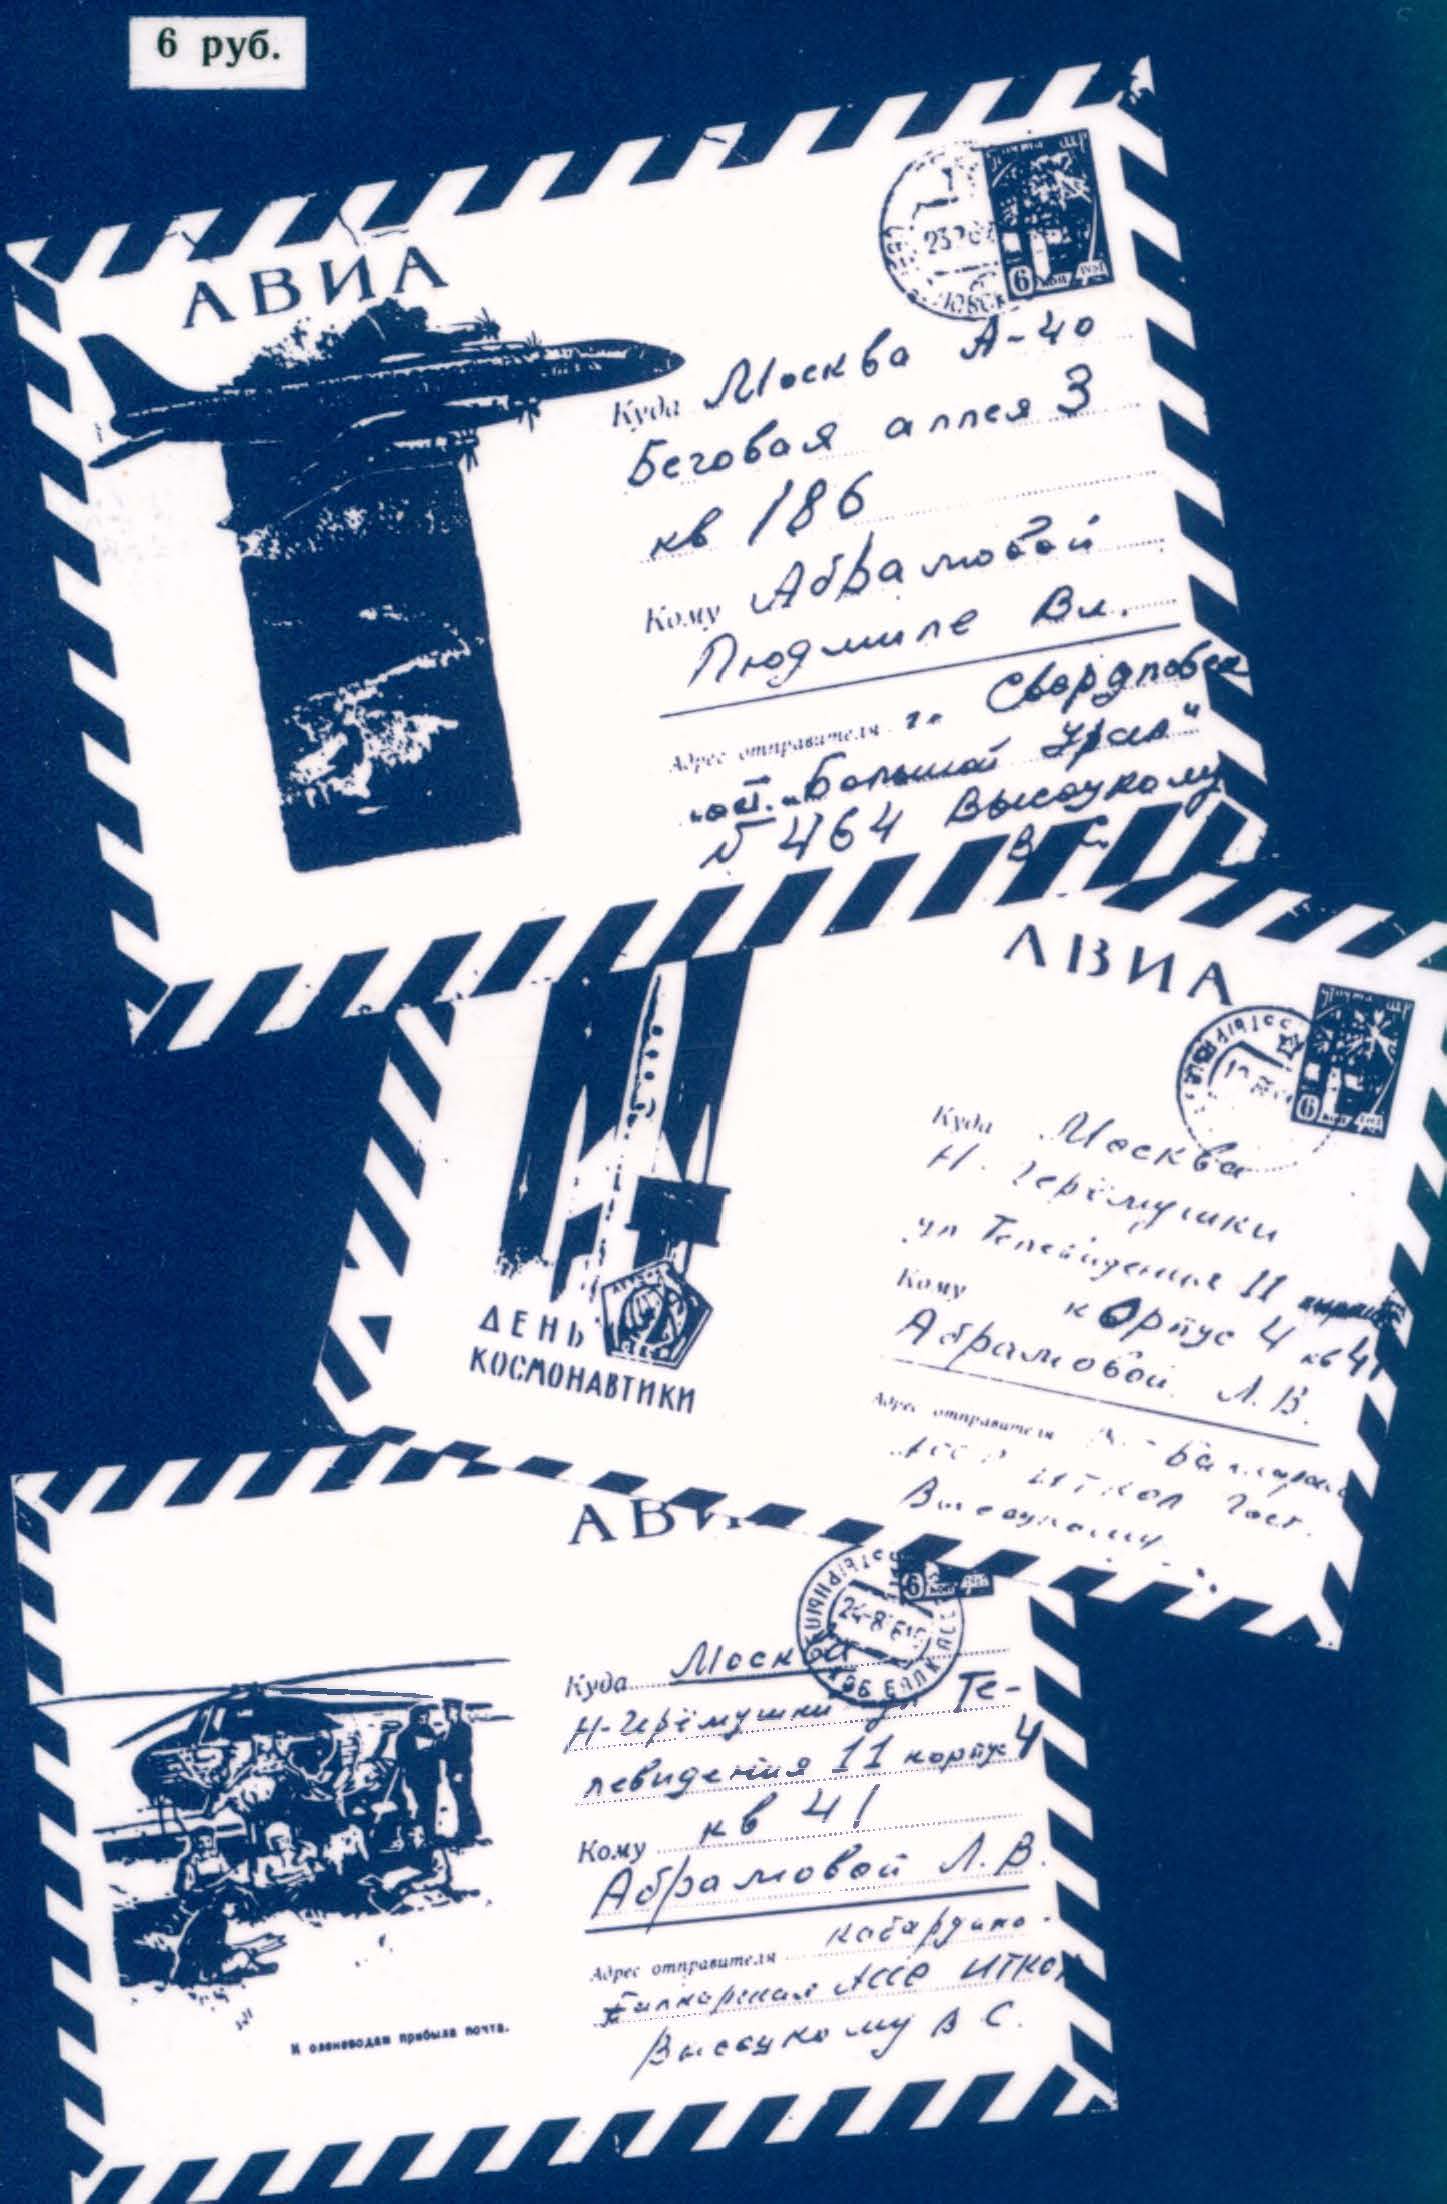 6 руб.
АВИА
6 коп
Куда Москва А-40
Беговая аллея 3
кв 186
Кому Абрамовой
Людмиле Вл.
Адрес отправителя г. Свердловск
„Большой Урал"
№ 464 Высоцкому
В С.
АВИА
6 коп
ДЕНЬ
КОСМОНАВТИКИ
Куда Москва
Н-Черёмушки
ул Телевидения 11
Кому корпус 4 кв 41
Абрамовой Л.В.
Адрес отправителя
АССР ИТКОЛ Гост.
Высоцкому
АВИ
6 коп
24-8
Куда Москва
Н-Черёмушки ул Те-
левидения 11 корпус 4
кв 41
Кому
Абрамовой Л.В.
Адрес отправителя Кабардино-
Балкарская АССР ИТКОЛ
Высоцкому В С.
К оленеводам прибыла почта.